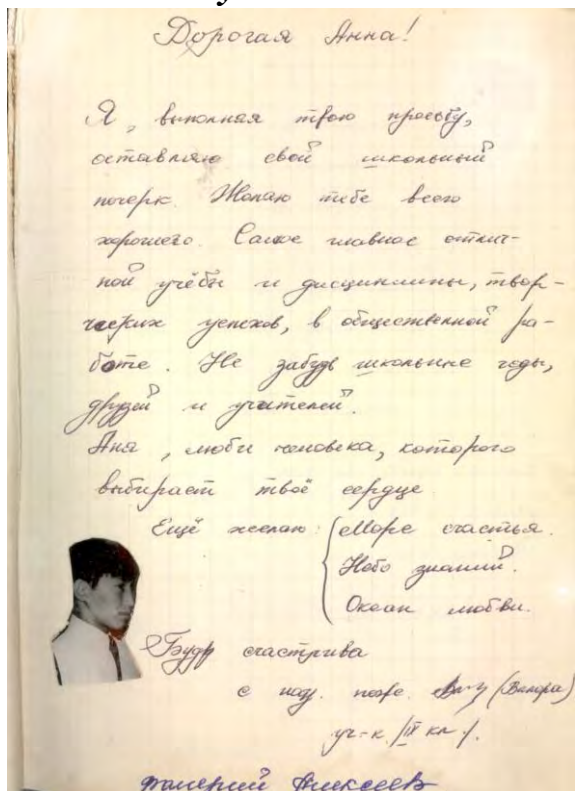 Дорогая Анна!
Я, выполняя твою просьбу,
оставляю свой школьный
почерк. Желаю тебе всего
хорошего. Самое главное отлич-
ной учёбы и дисциплины, твор-
ческих успехов, в общественной ра-
боте. Не забудь школьные годы,
друзей и учителей.
Аня, люби человека, которого
выбирает твоё сердце
Ещё желаю: Море счастья.
Небо знаний.
Океан любви.
Будь счастлива
с
уч-к /IX кл/.
Валерий Алексеев